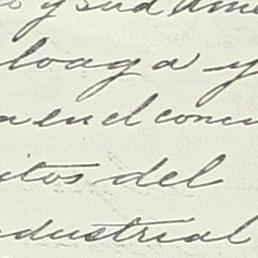 y sud Ame
loaga y
en el concu
itos del
ndustrial